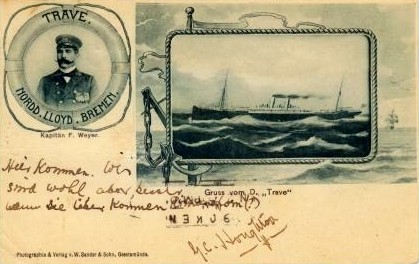 TRAVE.
NORDD. LLOYD. BREMEN.
Kapitän P. Weyer.
Gruss vom D. „Trave"
Hier kommen. Wir
sind wohl aber
wenn Sie über kommen
G.C. Houghton
Photographie & Verlag v. W. Sander & Sohn, Geestemünde.